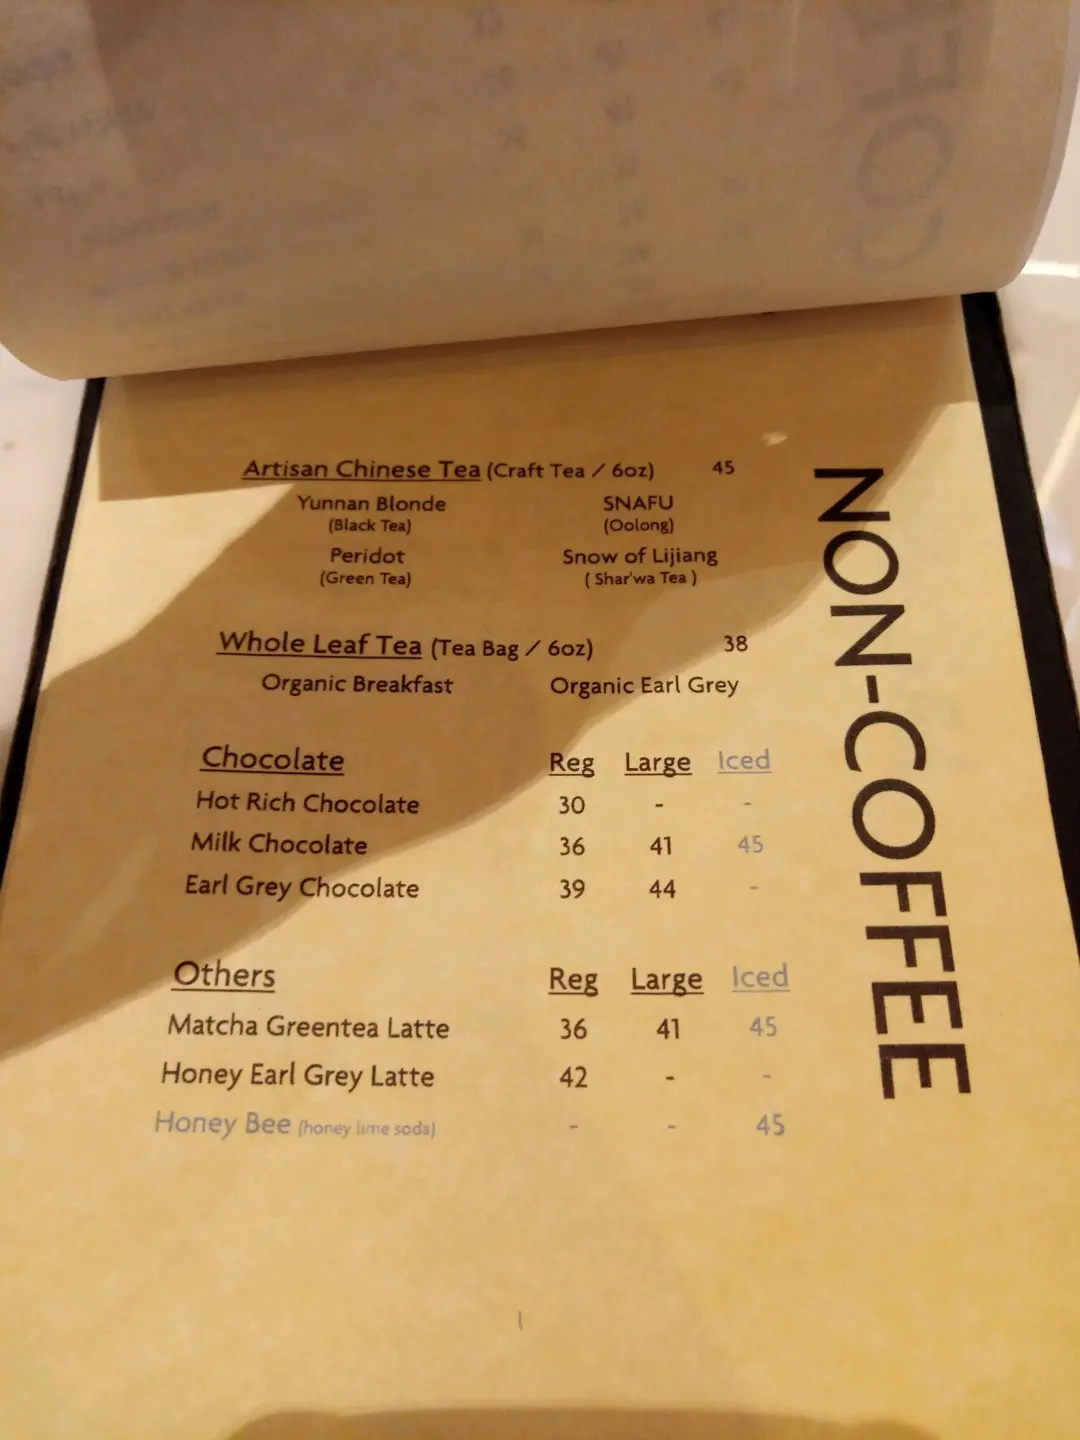 Artisan Chinese Tea (Craft Tea / 6oz) 45
Yunnan Blonde SNAFU
(Black Tea) (Oolong)
Peridot Snow of Lijiang
(Green Tea) ( Shar'wa Tea )
Whole Leaf Tea (Tea Bag / 6oz) 38
Organic Breakfast Organic Earl Grey
Chocolate Reg Large Iced
Hot Rich Chocolate 30 - -
Milk Chocolate 36 41 45
Earl Grey Chocolate 39 44 -
Others Reg Large Iced
Matcha Greentea Latte 36 41 45
Honey Earl Grey Latte 42 - -
Honey Bee (honey lime soda) - - 45
NON-COFFEE